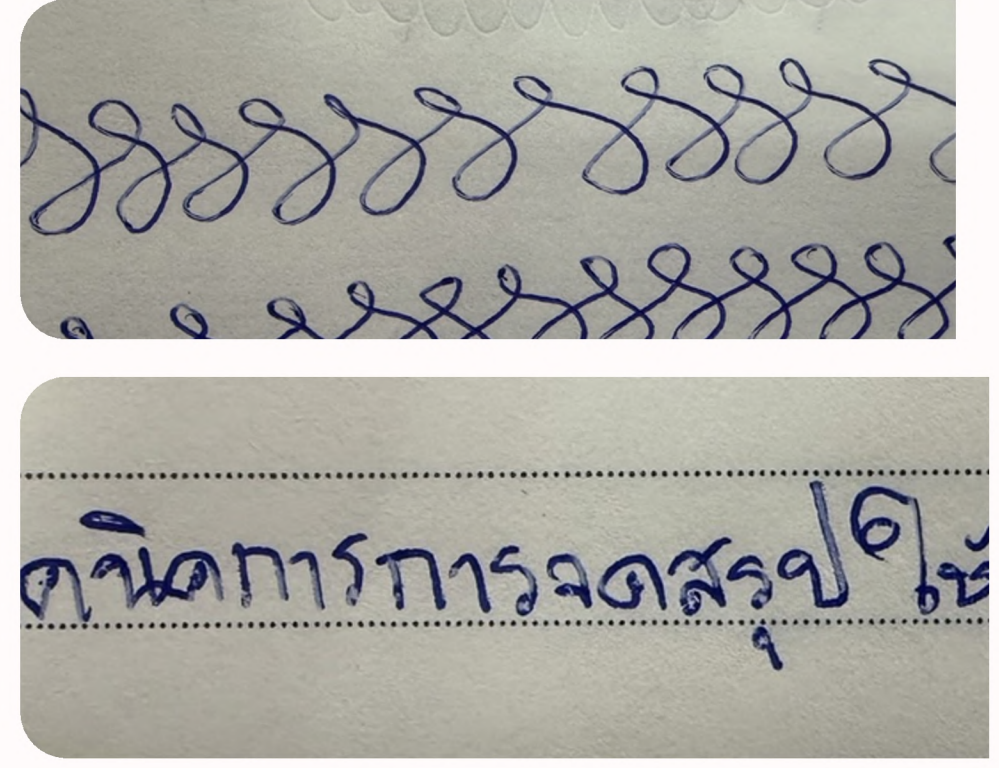 คนิคการการจดสรุป ให้